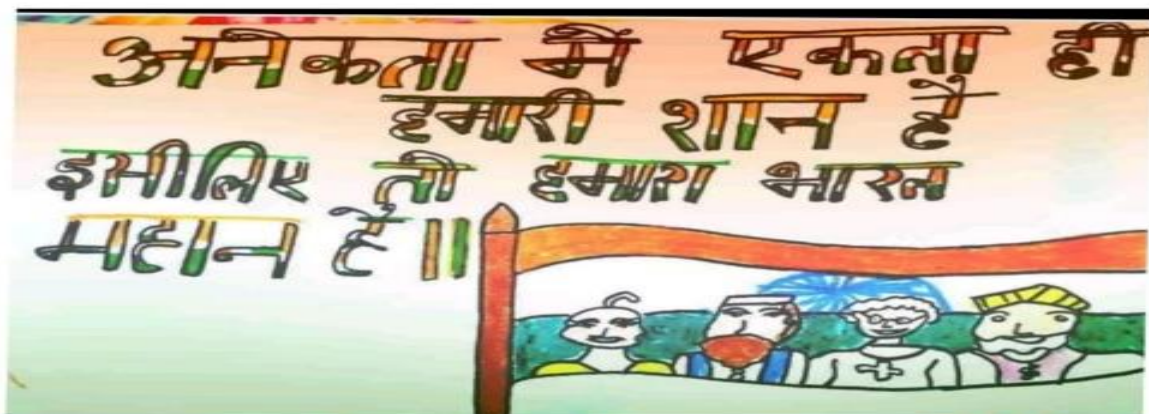 अनेकता में एकता ही
हमारी शान है
इसीलिए तो हमारा भारत
महान है॥